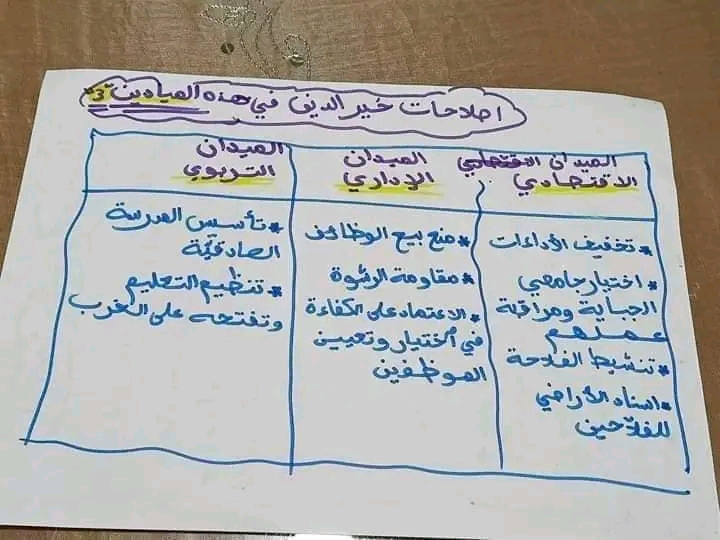 اصلاحات خير الدين في هذه الميادين "3"
الميدان الاقتصادي
الاقتصادي
* تخفيف الأداءات
* اختبار جامعي
الجباية ومراقبة
عملهم
* تنشيط الفلاحة
* اسناد الأراضي
للفلاحين
الميدان
الإداري
* منع بيع الوظائف
* مقاومة الرشوة
* الاعتماد على الكفاءة
في اختيار وتعيين
الموظفين
الميدان
التربوي
* تأسيس المدرسة
الصادقيّة
* تنظيم التعليم
وتفتحه على الغرب